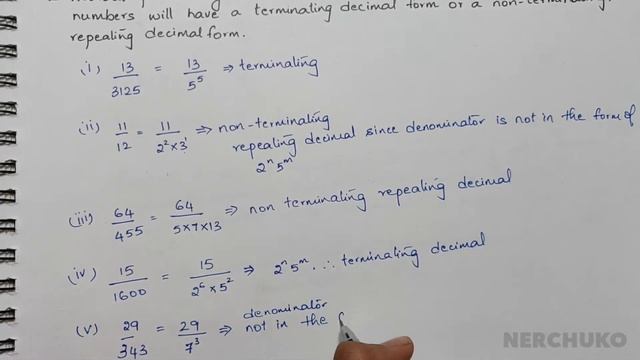 numbers will have a terminating decimal form or a non-terminating
repealing decimal form.
(i) 13/3125 = 13/5^5 ⇒ terminaling
(ii) 11/12 = 11/2^2×3^1 ⇒ non-terminaling
repealing decimal since denominalor is not in the form of
2^n 5^m
(iii) 64/455 = 64/5×7×13 ⇒ non terminaling repealing decimal
(iv) 15/1600 = 15/2^6×5^2 ⇒ 2^n 5^m. ∴ terminaling decimal
(v) 29/343 = 29/7^3 ⇒ denominalor
not in the
NERCHUKO